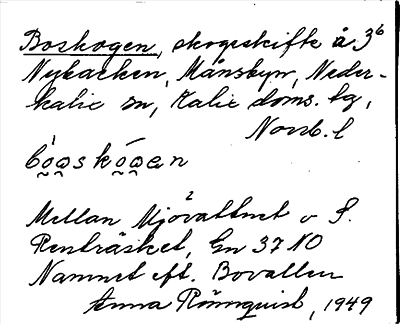 Boskogen, skogsskifte å 3⁶
Nybacken, Månsbyn, Neder-
kalix sn, Kalix doms. tg,
Norrb. l
Mellan Mjövattnet o S.
Renträsket, Gn 37 NO
Namnet eft. Bovallen
Anna Rönnquist, 1949